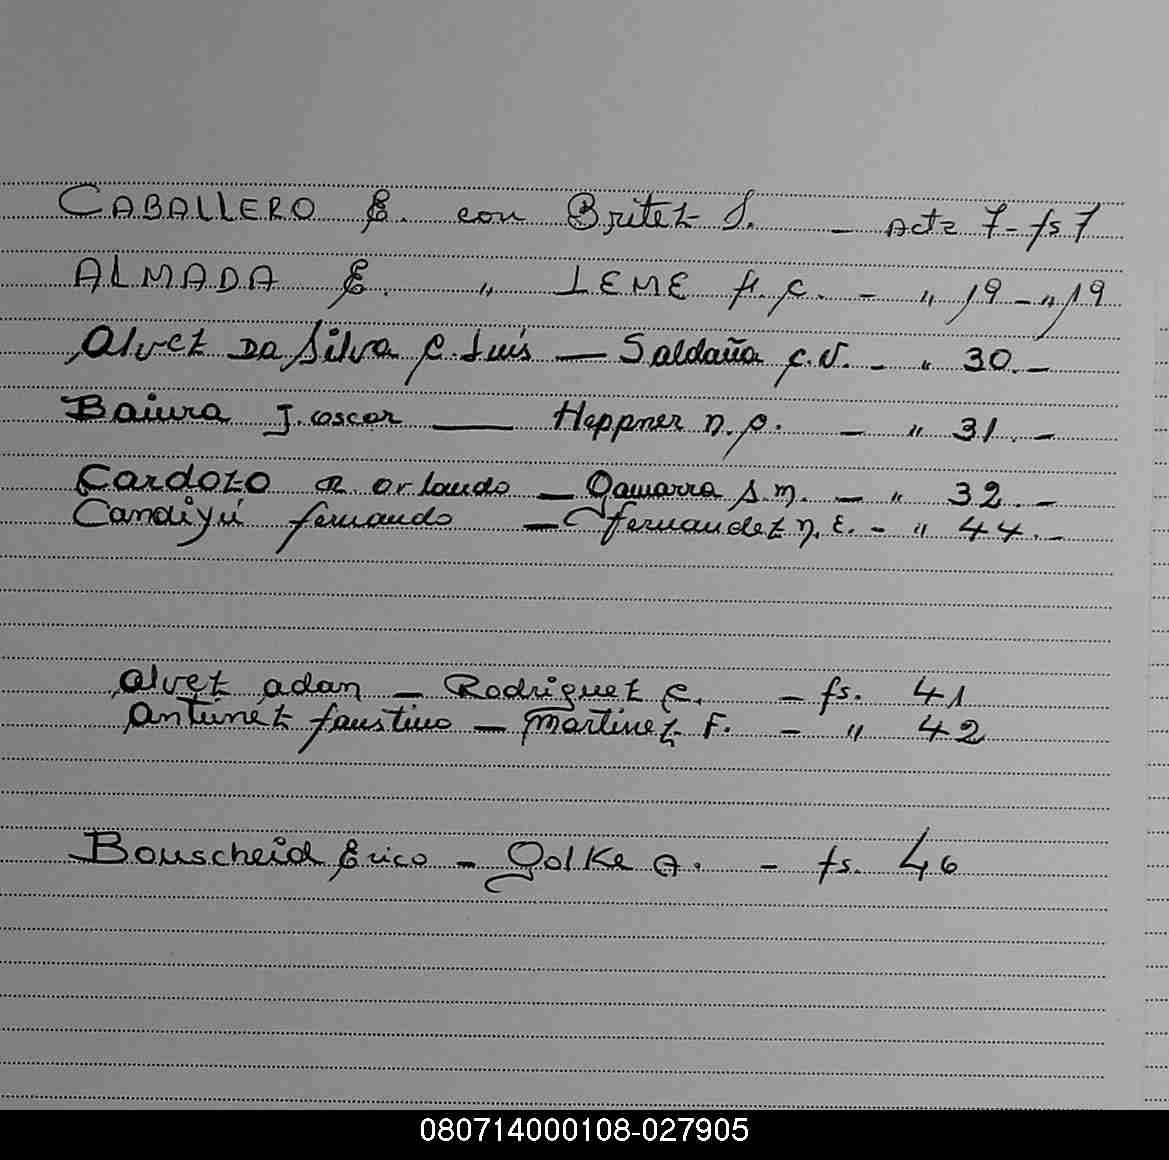 CABALLERO E. con Britez S. - Acta 7- fs 7
ALMADA E. " LEME H. C. - " 19 - " 19
Alvez Da Silva C. Luis — Saldaña C. V. - " 30. -
Baiura J. oscar — Heppner n. p. - " 31. -
Cardozo R. orlando - Gamarra S. m. - " 32. -
Candiyú fernando - fernandez n. E. - " 44. -
Alvez adan - Rodriguez C. - fs. 41
Antunez faustino - martinez F. - " 42
Bouscheid Erico - Golke A. - fs. 46
080714000108-027905